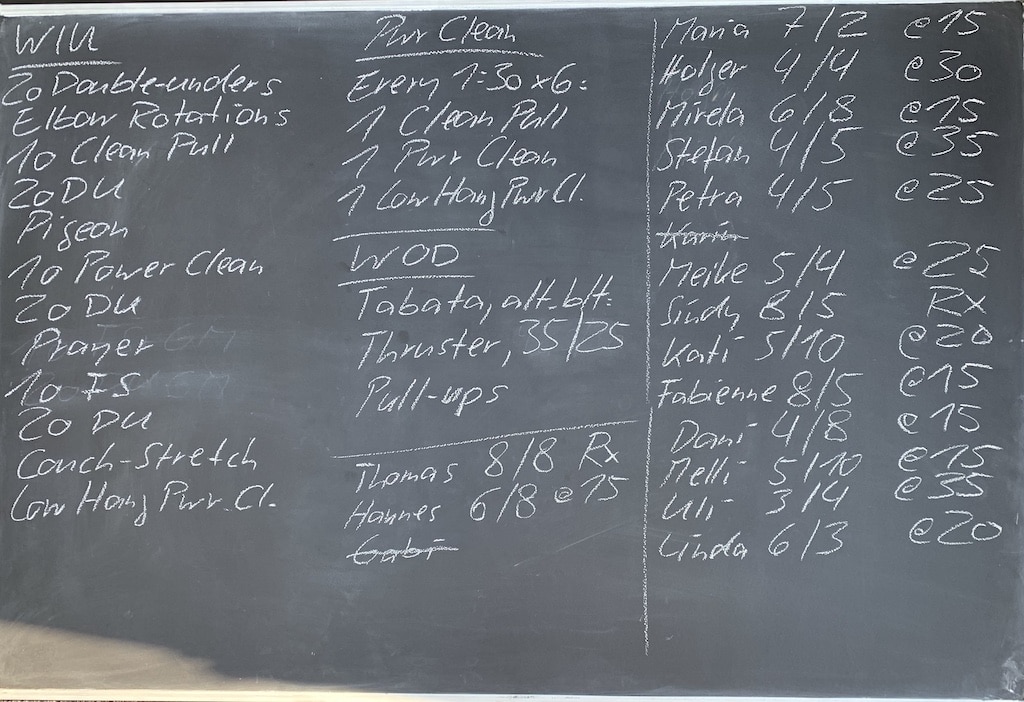 WIU
20 Double-unders
Elbow Rotations
10 Clean Pull
20 DU
Pigeon
10 Power Clean
20 DU
Prayer
10 FS
20 DU
Couch-Stretch
Low Hang Pwr. Cl.
Pwr Clean
Every 1:30 x 6:
1 Clean Pull
1 Pwr Clean
1 Low Hang Pwr Cl.
WOD
Tabata, alt. b/t:
Thruster, 35/25
Pull-ups
Thomas 8/8 Rx
Hannes 6/8 @15
Gabi
Maria 7/2 @15
Holger 4/4 @30
Mirela 6/8 @15
Stefan 4/5 @35
Petra 4/5 @25
Meike 5/4 @25
Sindy 8/5 Rx
Kati 5/10 @20
Fabienne 8/5 @15
Dani 4/8 @15
Melli 5/10 @15
Uli 3/4 @35
Linda 6/3 @20